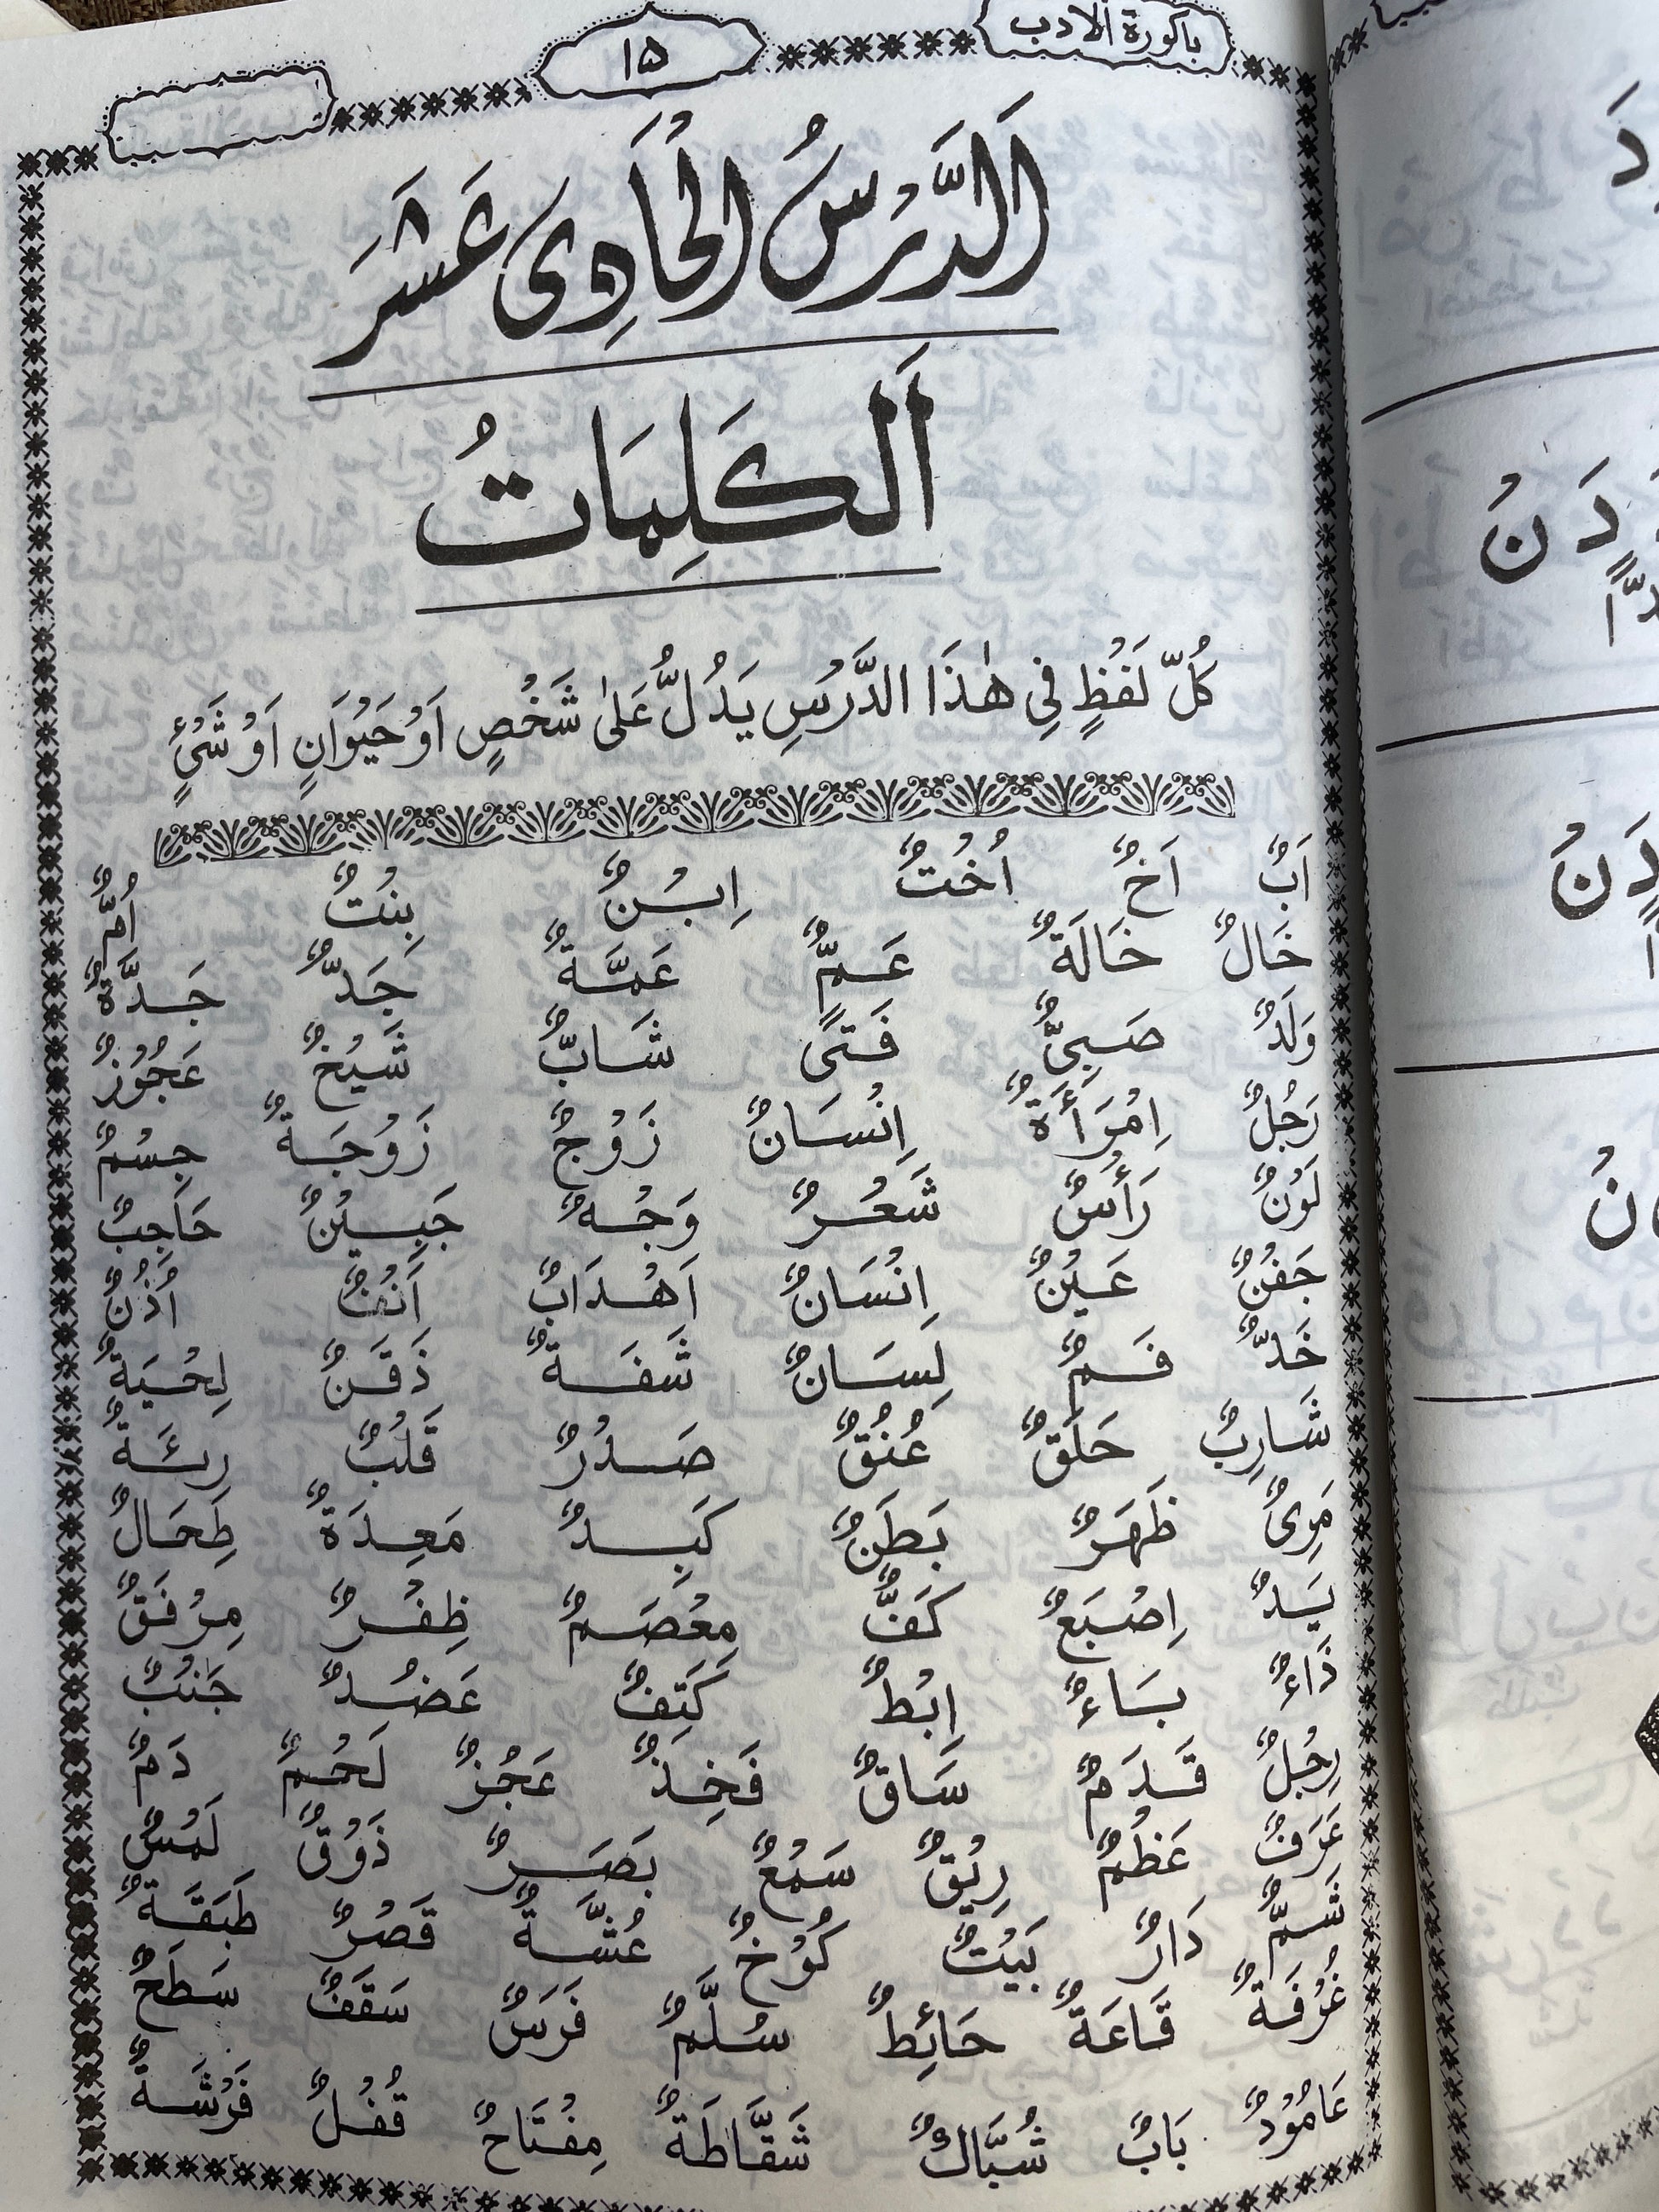 باكورة الادب
١٥
اَلدَّرْسُ الْحَادِىْ عَشَرَ
اَلْكَلِمَاتُ
كُلُّ لَفْظٍ فِي هٰذَا الدَّرْسِ يَدُلُّ عَلىٰ شَخْصٍ اَوْ حَيْوَانٍ اَوْ شَيْءٍ
اَبٌ اَخٌ اُخْتٌ اِبْنٌ بِنْتٌ اُمٌّ
خَالٌ خَالَةٌ عَمٌّ عَمَّةٌ جَدٌّ جَدَّةٌ
وَلَدٌ صَبِىٌّ فَتىً شَابٌّ شَيْخٌ عَجُوْزٌ
رَجُلٌ اِمْرَأَةٌ اِنْسَانٌ زَوْجٌ زَوْجَةٌ جِسْمٌ
لَوْنٌ رَأْسٌ شَعْرٌ وَجْهٌ جَبِيْنٌ حَاجِبٌ
جَفْنٌ عَيْنٌ اِنْسَانٌ اَهْدَابٌ اَنْفٌ اُذْنٌ
خَدٌّ فَمٌ لِسَانٌ شَفَةٌ ذَقَنٌ لِحْيَةٌ
شَارِبٌ حَلَقٌ عُنْقٌ صَدْرٌ قَلْبٌ رِئَةٌ
مَرِىٌ ظَهَرٌ بَطَنٌ كَبِدٌ مَعِدَةٌ طِحَالٌ
يَدٌ اِصْبَعٌ كَفٌّ مِعْصَمٌ ظِفْرٌ مِرْفَقٌ
ذَاءٌ بَاءٌ اِبْطٌ كَتِفٌ عَضُدٌ جَنْبٌ
رِجْلٌ قَدَمٌ سَاقٌ فَخِذٌ عَجُزٌ لَحْمٌ دَمٌ
عَرَقٌ عَظْمٌ رِيْقٌ سَمْعٌ بَصَرٌ ذَوْقٌ لَمْسٌ
شَمٌّ دَارٌ بَيْتٌ كُوْخٌ عُشَّةٌ قَصْرٌ طَبَقَةٌ
غُرْفَةٌ قَاعَةٌ حَائِطٌ سُلَّمٌ فَرَسٌ سَقَفٌ سَطَحٌ
عَامُوْدٌ بَابٌ شُبَّاكٌ شَقَّاطَةٌ مِفْتَاحٌ قُفْلٌ فَرْشَةٌ